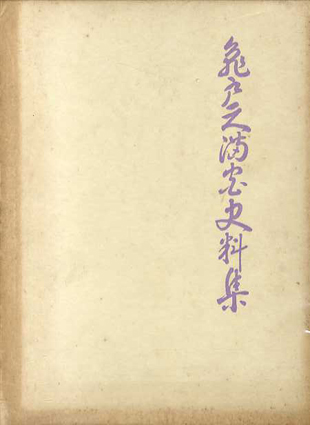 亀戸天満宮史料集